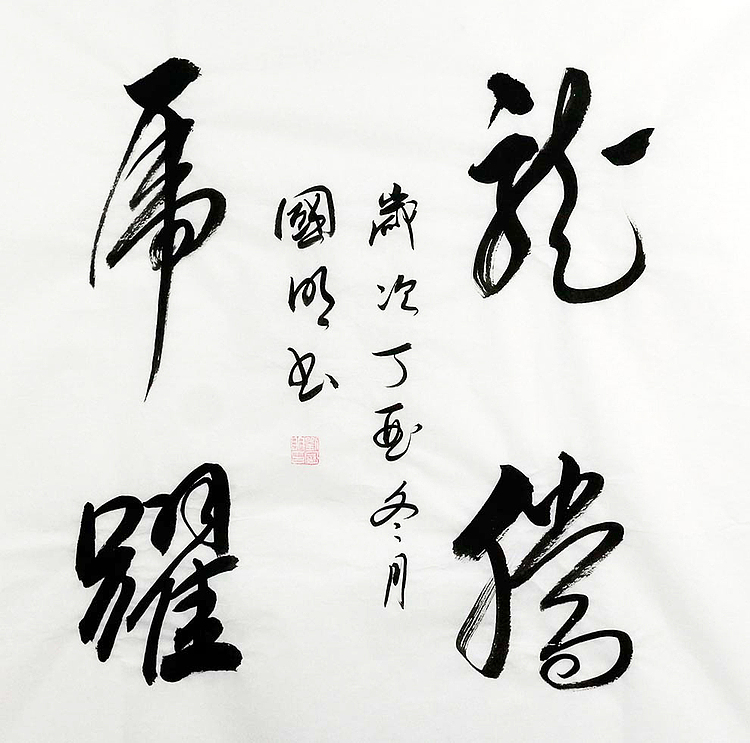 龍騰
虎躍
歲次丁酉冬月
國明书